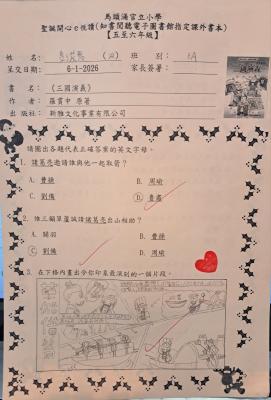 馬頭涌官立小學
聖誕開心e悅讀(知書閱聽電子圖書館指定課外書本)
【五至六年級】
姓名: 班別: 5A
呈交日期: 6-1-2026 家長簽署:
書名: 《三國演義》
作者: 羅貫中 原著
出版社: 新雅文化事業有限公司
請圈出各題代表正確答案的英文字母。
1. 諸葛亮邀請誰與他一起取箭?
A. 曹操 B. 周瑜
C. 劉備 D. 魯肅
2. 誰三顧草廬誠請諸葛亮出山相助?
A. 關羽 B. 曹操
C. 劉備 D. 周瑜
3. 在下格內畫出令你印象最深刻的一個片段。
草船借箭